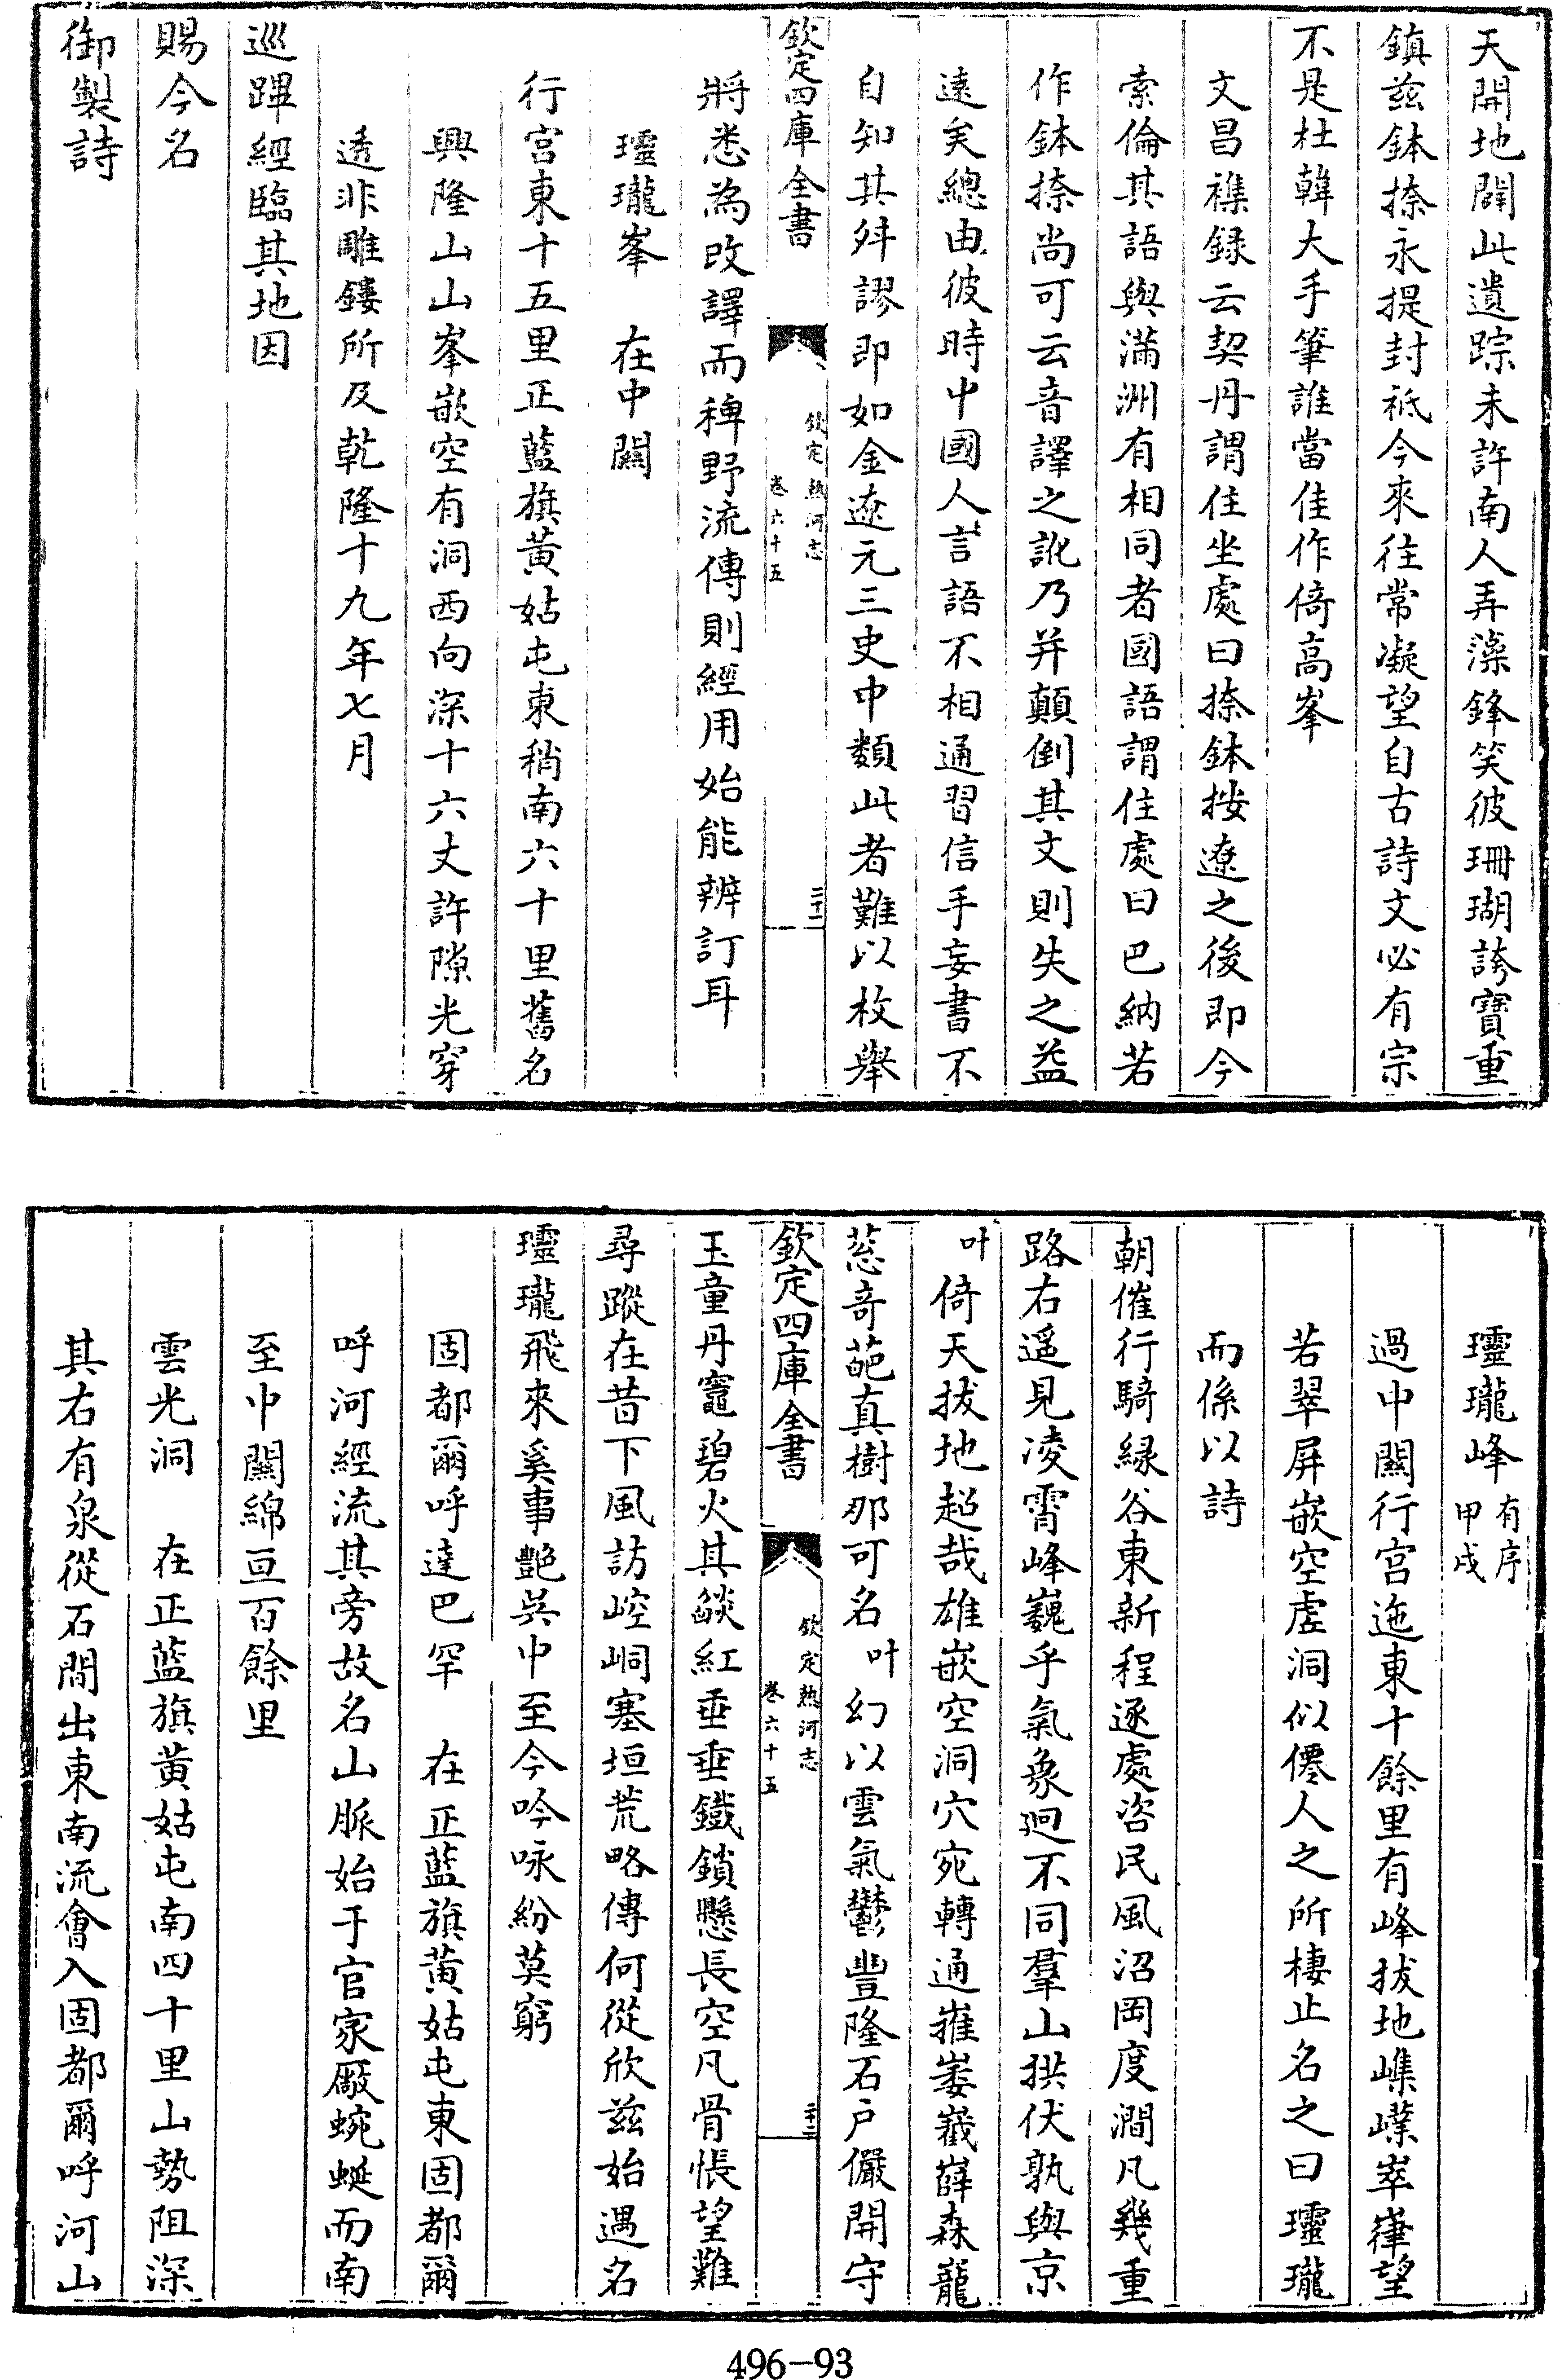 天開地闢此遺踪未許南人弄藻鋒笑彼珊瑚誇寶重
鎮兹鉢捺永提封祇今來往常凝望自古詩文必有宗
不是杜韓大手筆誰當佳作倚高峯
文昌襍録云契丹謂住坐處曰捺鉢按遼之後即今
索倫其語與滿洲有相同者國語謂住處曰巴納若
作鉢捺尚可云音譯之訛乃并顛倒其文則失之益
遠矣總由彼時中國人言語不相通習信手妄書不
自知其舛謬即如金遼元三史中類此者難以枚舉
欽定四庫全書
欽定熱河志
卷六十五
二十二
將悉為改譯而稗野流傳則經用始能辨訂耳
瓐瓏峯 在中關
行宫東十五里正藍旗黄姑屯東稍南六十里舊名
興隆山山峯嵌空有洞西向深十六丈許隙光穿
透非雕鏤所及乾隆十九年七月
巡蹕經臨其地因
賜今名
御製詩
瓐瓏峰有序甲戌
過中關行宫迤東十餘里有峰拔地嶕嶫崒嵂望
若翠屏嵌空虚洞似僊人之所棲止名之曰瓐瓏
而係以詩
朝催行騎緑谷東新程逐處咨民風沼岡度澗凡幾重
路右遥見凌霄峰巍乎氣象迥不同羣山拱伏孰與京
叶倚天拔地超哉雄嵌空洞穴宛轉通嶊崣嶻嶭森巃
蓯奇葩真樹那可名叶幻以雲氣鬱豐隆石户儼開守
欽定四庫全書
欽定熱河志
卷六十五
二十三
玉童丹竈碧火其燄紅垂垂鐵鎖懸長空凡骨悵望難
尋蹤在昔下風訪崆峒塞垣荒略傳何從欣兹始遇名
瓐瓏飛來奚事艷吳中至今吟咏紛莫窮
固都爾呼達巴罕 在正藍旗黄姑屯東固都爾
呼河經流其旁故名山脈始于官家厰蜿蜒而南
至中關綿亘百餘里
雲光洞 在正藍旗黄姑屯南四十里山勢阻深
其右有泉從石間出東南流會入固都爾呼河山
496-93